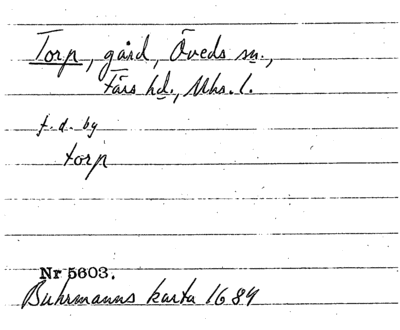 Torp, gård, Öveds sn.,
Färs hd., Mhs. l.
f. d. by
torp
Nr 5603.
Buhrmanns karta 1684